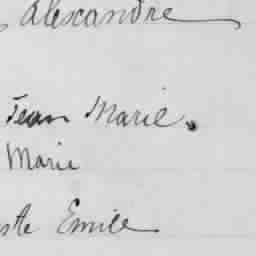 Alexandre
Jean Marie.
Marie
ste Emile